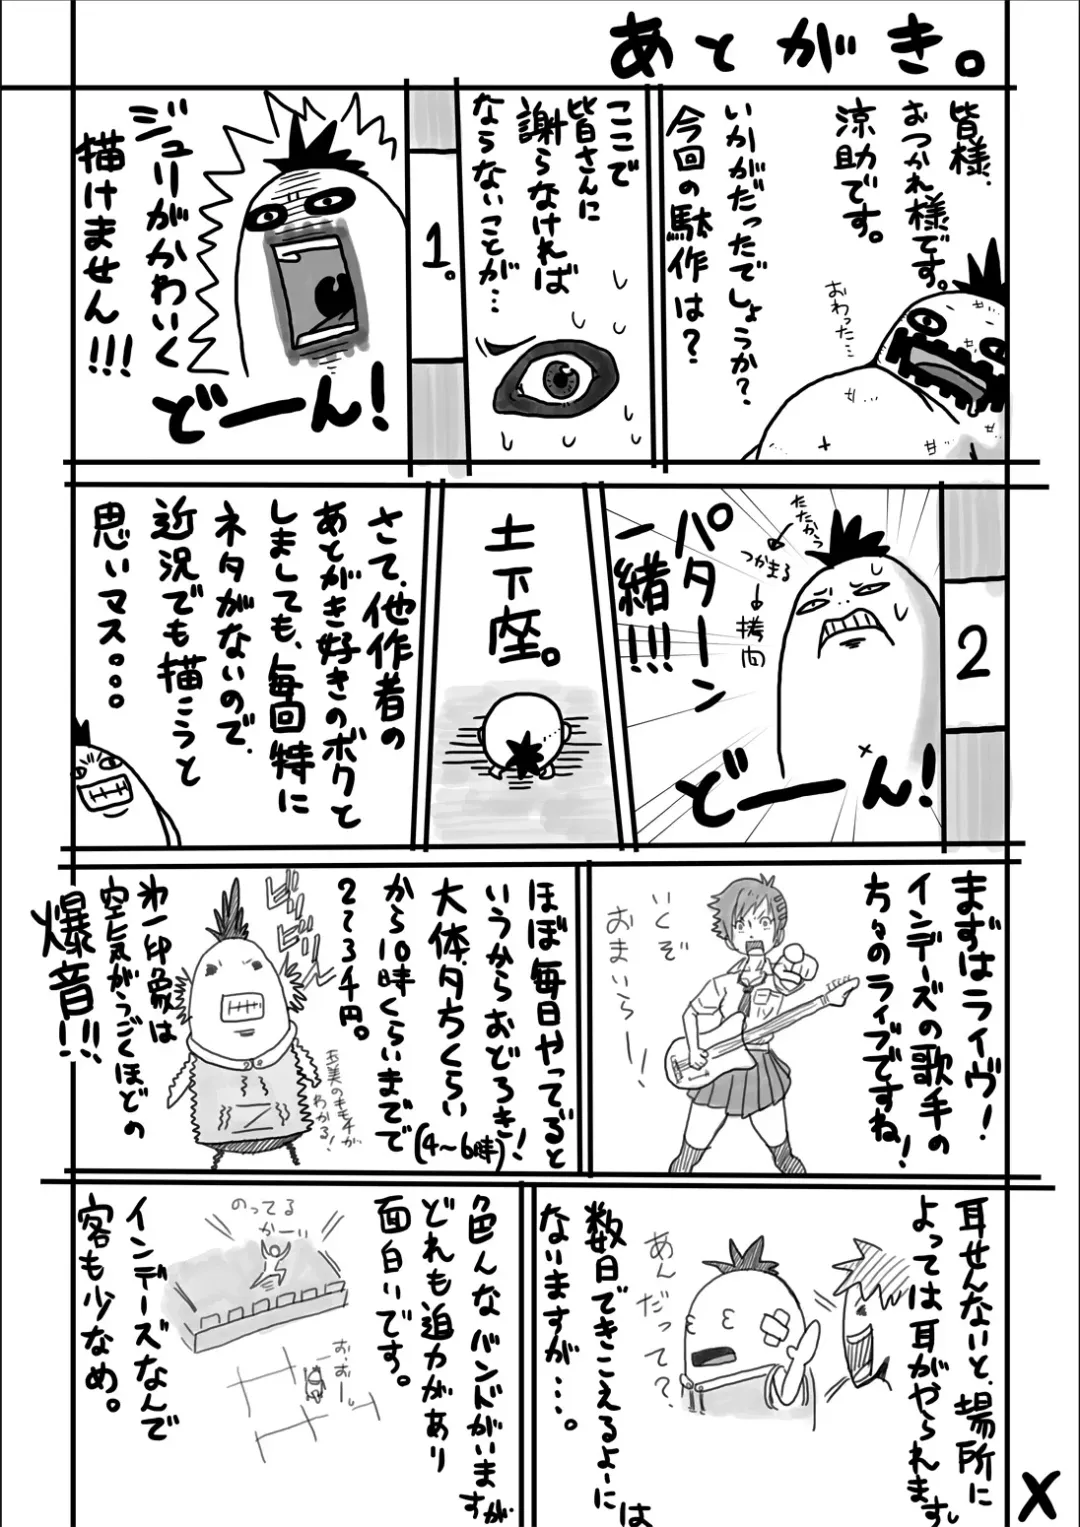 あとがき。
皆様、
おつかれ様です。
涼助です。
おわった…
いかがだったでしょうか?
今回の駄作は?
ここで
皆さんに
謝らなければ
ならないことが…
1。
ジュリがかわいく
描けません!!!
どーん!
2
たたかう
つかまる
拷問
パターン
一緒!!!
どーん!
土下座。
さて、他作者の
あとがき好きのボクと
しましても、毎回特に
ネタがないので、
近況でも描こうと
思いマス。。。
まずはライヴ!
インデーズの歌手の
方々のライブですね!
いくぞ
おまいらー!!
ほぼ毎日やってると
いうからおどろき!
大体夕方くらい
(4〜6時)
から10時くらいまでで
2〜3千円。
ビリビリ
第一印象は
空気がうごくほどの
爆音!!!
わかる!
耳せんないと、場所に
よっては耳がやられます。
あん
だって?
数日できこえるよーには
ないますが…。
色んなバンドがいますが
どれも迫力があり
面白いです。
のってる
かーい
お、おー。
インデーズなんで
客も少なめ。
X